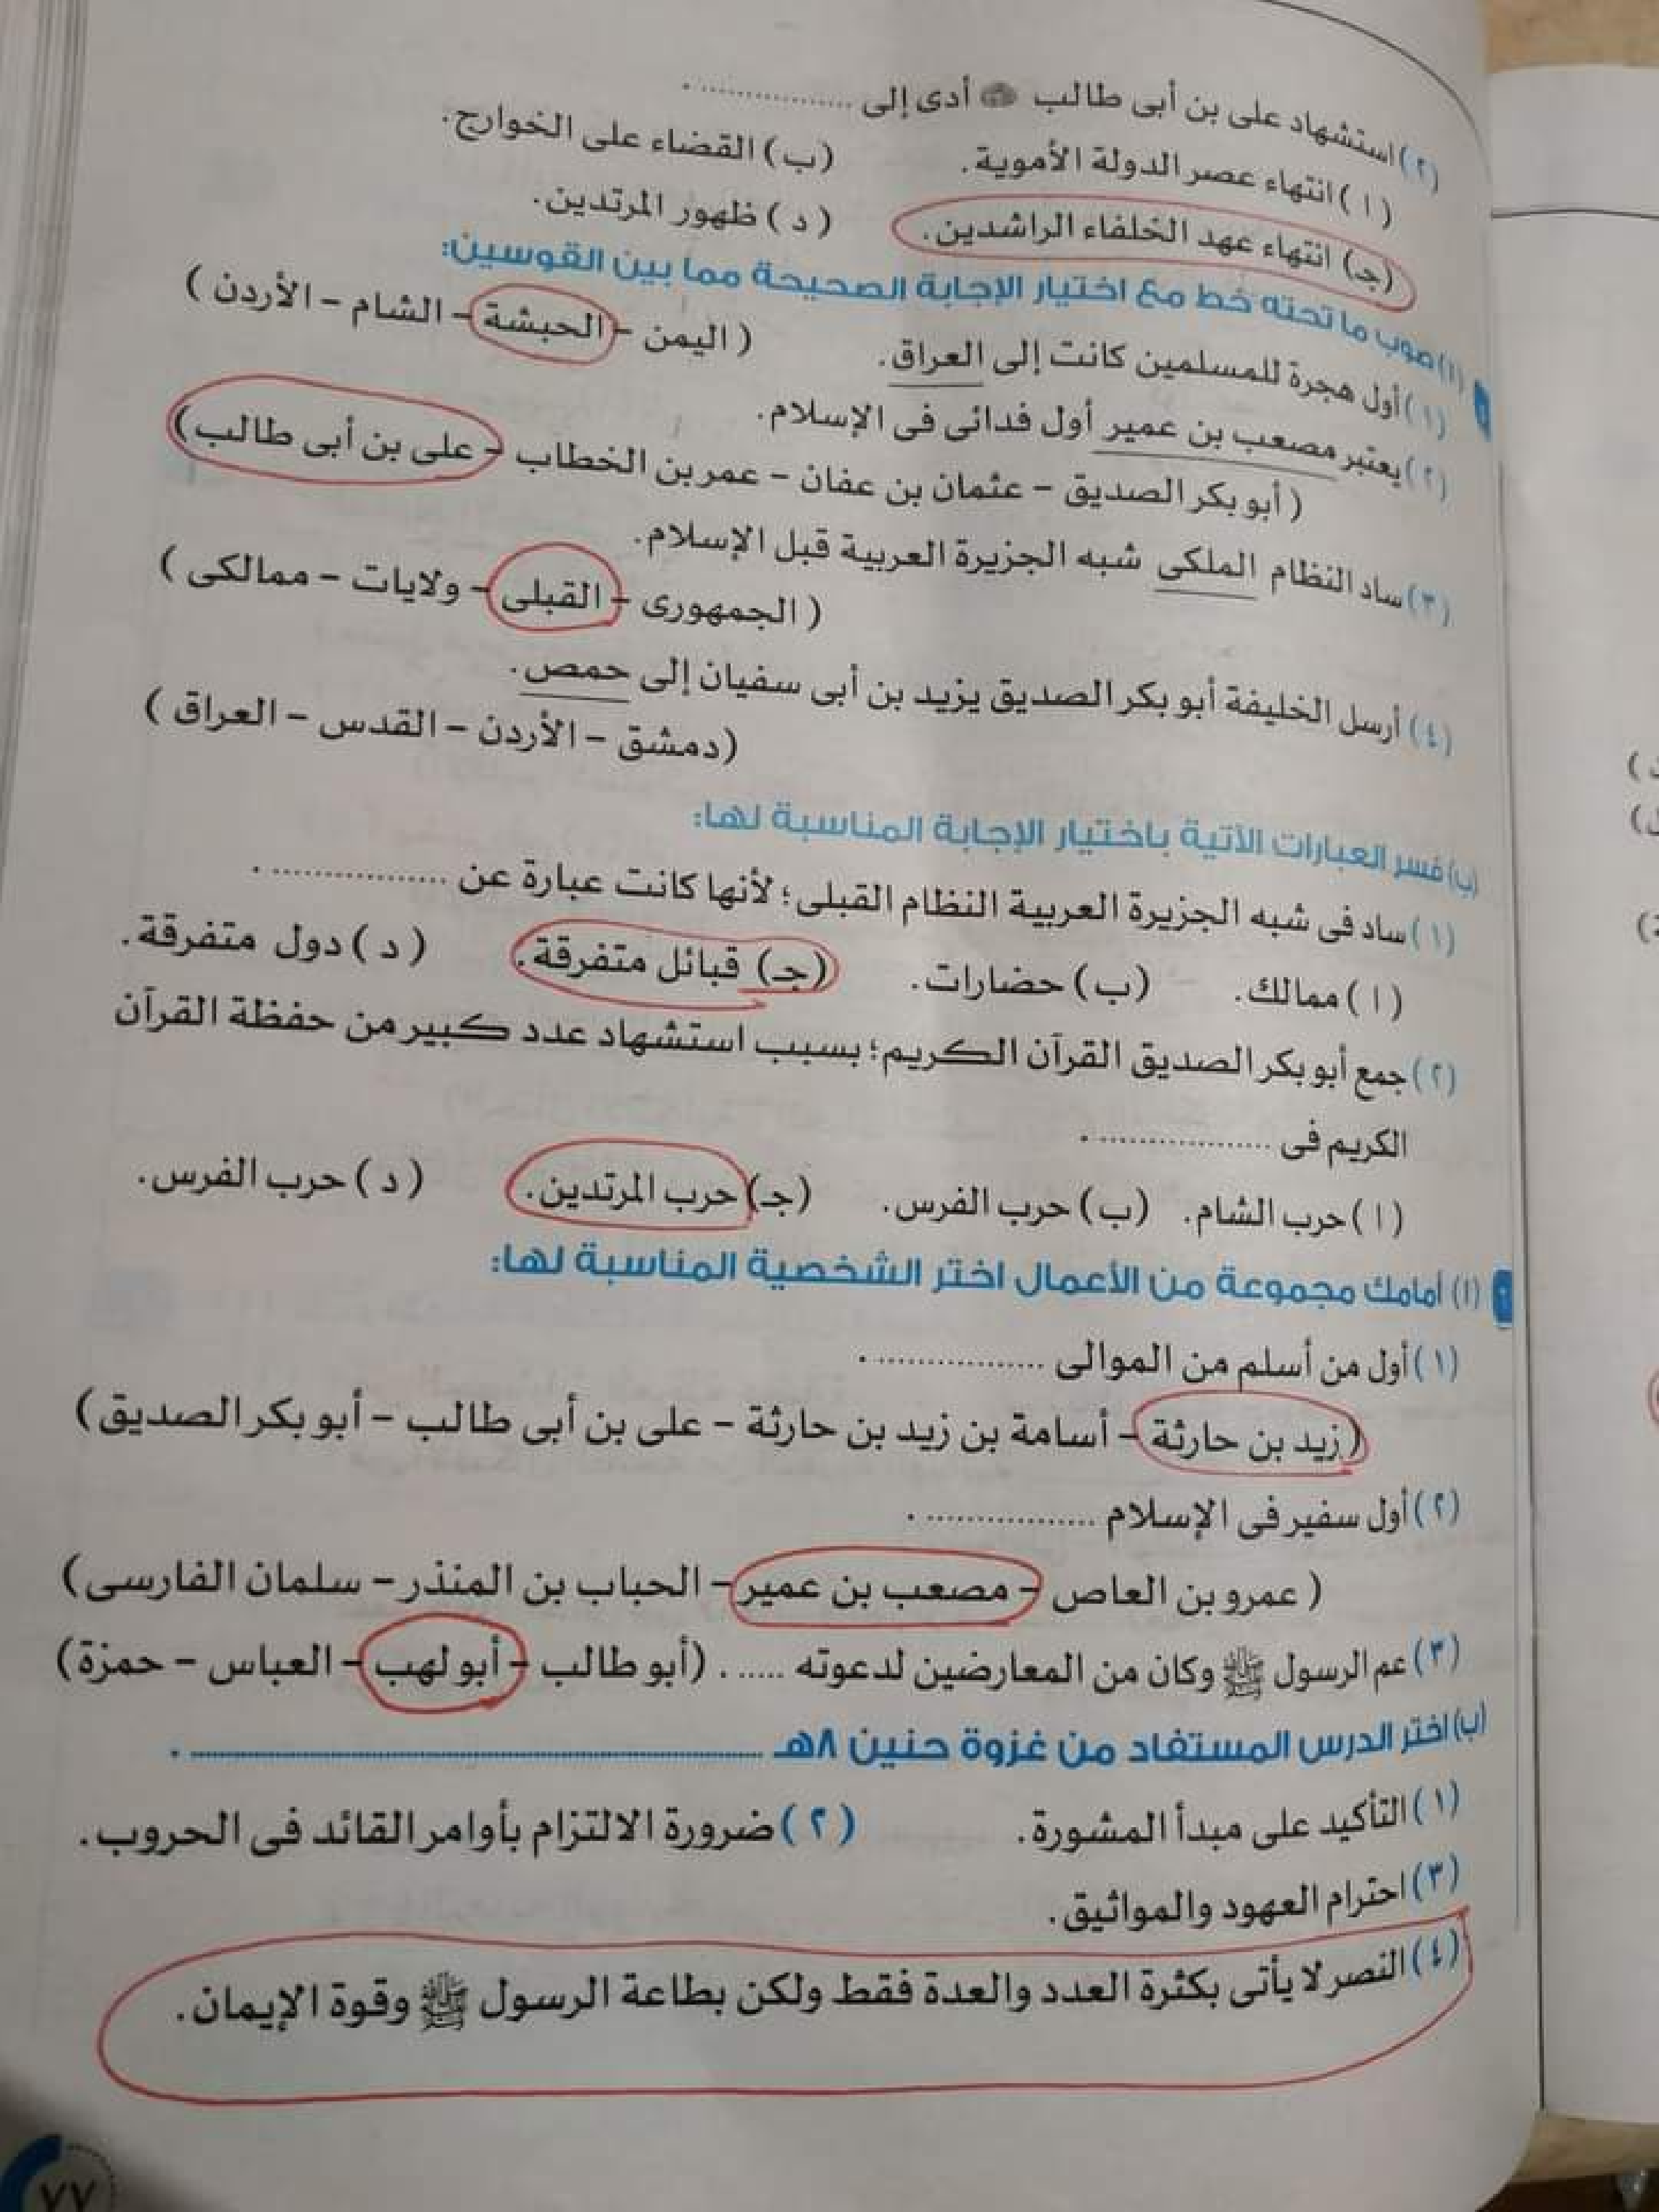 (٢) استشهاد على بن أبى طالب أدى إلى ................ .
(١) انتهاء عصر الدولة الأموية. (ب) القضاء على الخوارج.
(جـ) انتهاء عهد الخلفاء الراشدين. (د) ظهور المرتدين.
(١) صوب ما تحته خط مع اختيار الإجابة الصحيحة مما بين القوسين:
(١) أول هجرة للمسلمين كانت إلى العراق. ( اليمن – الحبشة – الشام – الأردن )
(٢) يعتبر مصعب بن عمير أول فدائى فى الإسلام.
( أبو بكر الصديق – عثمان بن عفان – عمر بن الخطاب – على بن أبى طالب )
(٣) ساد النظام الملكى شبه الجزيرة العربية قبل الإسلام.
( الجمهورى – القبلى – ولايات – ممالكى )
(٤) أرسل الخليفة أبو بكر الصديق يزيد بن أبى سفيان إلى حمص.
(دمشق – الأردن – القدس – العراق )
(ب) فسر العبارات الآتية باختيار الإجابة المناسبة لها:
(١) ساد فى شبه الجزيرة العربية النظام القبلى؛ لأنها كانت عبارة عن ................ .
(١) ممالك. (ب) حضارات. (جـ) قبائل متفرقة. (د) دول متفرقة.
(٢) جمع أبو بكر الصديق القرآن الكريم؛ بسبب استشهاد عدد كبير من حفظة القرآن
الكريم فى ................ .
(١) حرب الشام. (ب) حرب الفرس. (جـ) حرب المرتدين. (د) حرب الفرس.
(١) أمامك مجموعة من الأعمال اختر الشخصية المناسبة لها:
(١) أول من أسلم من الموالى ................ .
(زيد بن حارثة – أسامة بن زيد بن حارثة – على بن أبى طالب – أبو بكر الصديق)
(٢) أول سفير فى الإسلام ................ .
( عمرو بن العاص – مصعب بن عمير – الحباب بن المنذر – سلمان الفارسى)
(٣) عم الرسول ﷺ وكان من المعارضين لدعوته ..... . (أبو طالب – أبو لهب – العباس – حمزة)
(ب) اختر الدرس المستفاد من غزوة حنين ٨هـ ................ .
(١) التأكيد على مبدأ المشورة. (٢) ضرورة الالتزام بأوامر القائد فى الحروب.
(٣) احترام العهود والمواثيق.
(٤) النصر لا يأتى بكثرة العدد والعدة فقط ولكن بطاعة الرسول ﷺ وقوة الإيمان.
٧٧